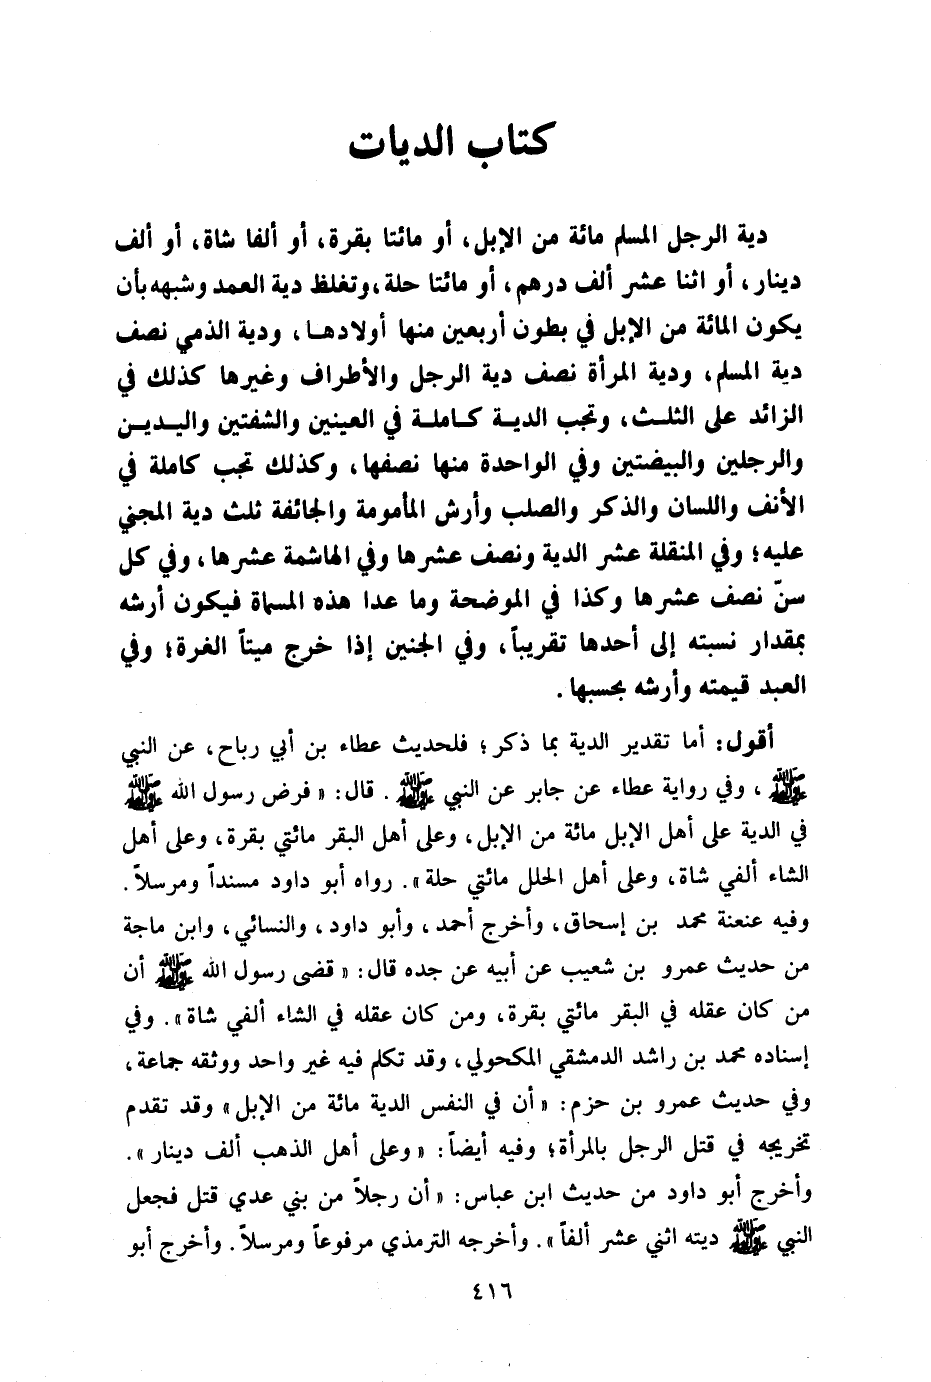 كتاب الديات
دية الرجل المسلم مائة من الإبل، أو مائتا بقرة، أو ألفا شاة، أو ألف
دينار، أو اثنا عشر ألف درهم، أو مائتا حلة، وتغلظ دية العمد وشبهه بأن
يكون المائة من الإبل في بطون أربعين منها أولادها، ودية الذمي نصف
دية المسلم، ودية المرأة نصف دية الرجل والأطراف وغيرها كذلك في
الزائد على الثلث، وتجب الدية كاملة في العينين والشفتين واليدين
والرجلين والبيضتين وفي الواحدة منها نصفها، وكذلك تجب كاملة في
الأنف واللسان والذكر والصلب وأرش المأمومة والجائفة ثلث دية المجني
عليه؛ وفي المنقلة عشر الدية ونصف عشرها وفي الهاشمة عشرها، وفي كل
سنّ نصف عشرها وكذا في الموضحة وما عدا هذه المسماة فيكون أرشه
بمقدار نسبته إلى أحدها تقريباً، وفي الجنين إذا خرج ميتاً الغرة؛ وفي
العبد قيمته وأرشه بحسبها.
أقول: أما تقدير الدية بما ذكر؛ فلحديث عطاء بن أبي رباح، عن النبي
ﷺ، وفي رواية عطاء عن جابر عن النبي ﷺ. قال: « فرض رسول الله ﷺ
في الدية على أهل الإبل مائة من الإبل، وعلى أهل البقر مائتي بقرة، وعلى أهل
الشاء ألفي شاة، وعلى أهل الحلل مائتي حلة ». رواه أبو داود مسنداً ومرسلاً.
وفيه عنعنة محمد بن إسحاق، وأخرج أحمد، وأبو داود، والنسائي، وابن ماجة
من حديث عمرو بن شعيب عن أبيه عن جده قال: « قضى رسول الله ﷺ أن
من كان عقله في البقر مائتي بقرة، ومن كان عقله في الشاء ألفي شاة ». وفي
إسناده محمد بن راشد الدمشقي المكحولي، وقد تكلم فيه غير واحد ووثقه جماعة،
وفي حديث عمرو بن حزم: « أن في النفس الدية مائة من الإبل » وقد تقدم
تخريجه في قتل الرجل بالمرأة؛ وفيه أيضاً: « وعلى أهل الذهب ألف دينار ».
وأخرج أبو داود من حديث ابن عباس: « أن رجلاً من بني عدي قتل فجعل
النبي ﷺ ديته اثني عشر ألفاً ». وأخرجه الترمذي مرفوعاً ومرسلاً. وأخرج أبو
٤١٦